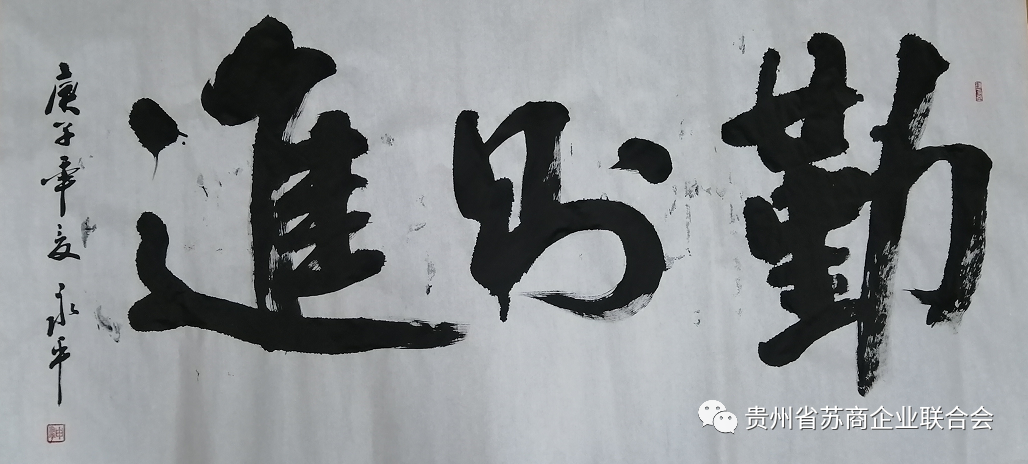 勤則進
庚子年夏 永平
贵州省苏商企业联合会